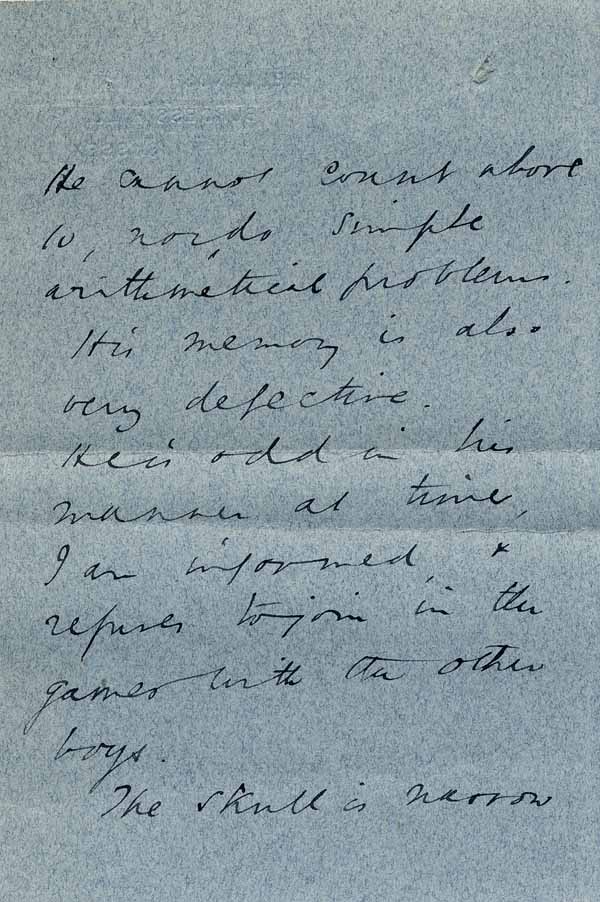 He cannot count above
10, nor do simple
arithmetical problems.
His memory is also
very defective.
He is odd in his
manner at times,
I am informed, &
refuses to join in the
games with the other
boys.
The skull is narrow